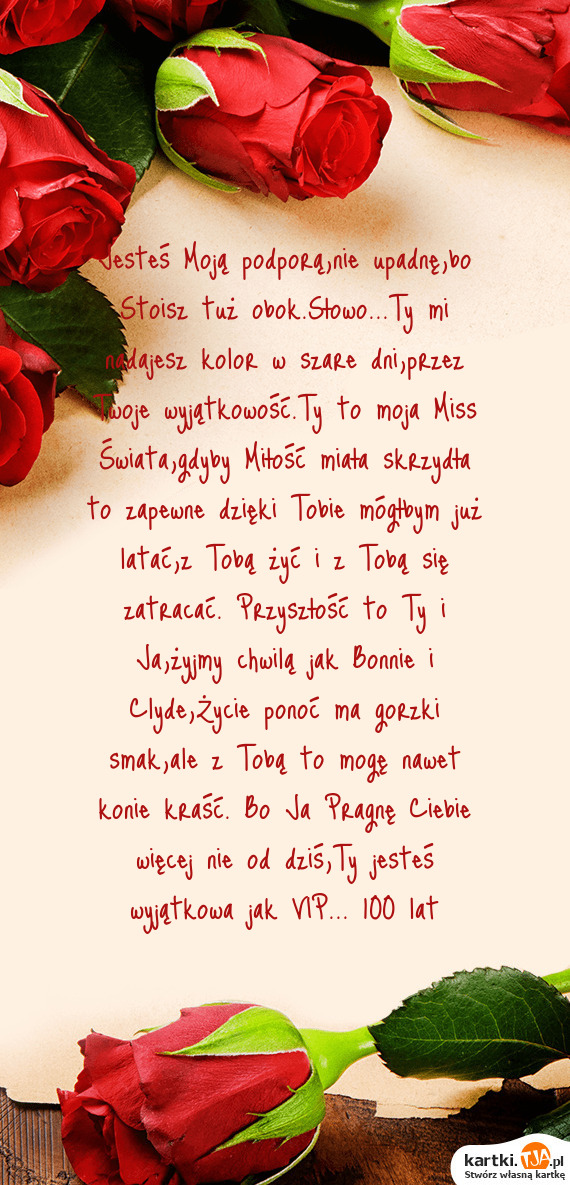 Jesteś Moją podporą,nie upadnę,bo
Stoisz tuż obok.Słowo...Ty mi
nadajesz kolor w szare dni,przez
Twoje wyjątkowość.Ty to moja Miss
Świata,gdyby Miłość miała skrzydła
to zapewne dzięki Tobie mógłbym już
latać,z Tobą żyć i z Tobą się
zatracać. Przyszłość to Ty i
Ja,żyjmy chwilą jak Bonnie i
Clyde,Życie ponoć ma gorzki
smak,ale z Tobą to mogę nawet
konie kraść. Bo Ja Pragnę Ciebie
więcej nie od dziś,Ty jesteś
wyjątkowa jak VIP... 100 lat
kartki.TJA.pl
Stwórz własną kartkę